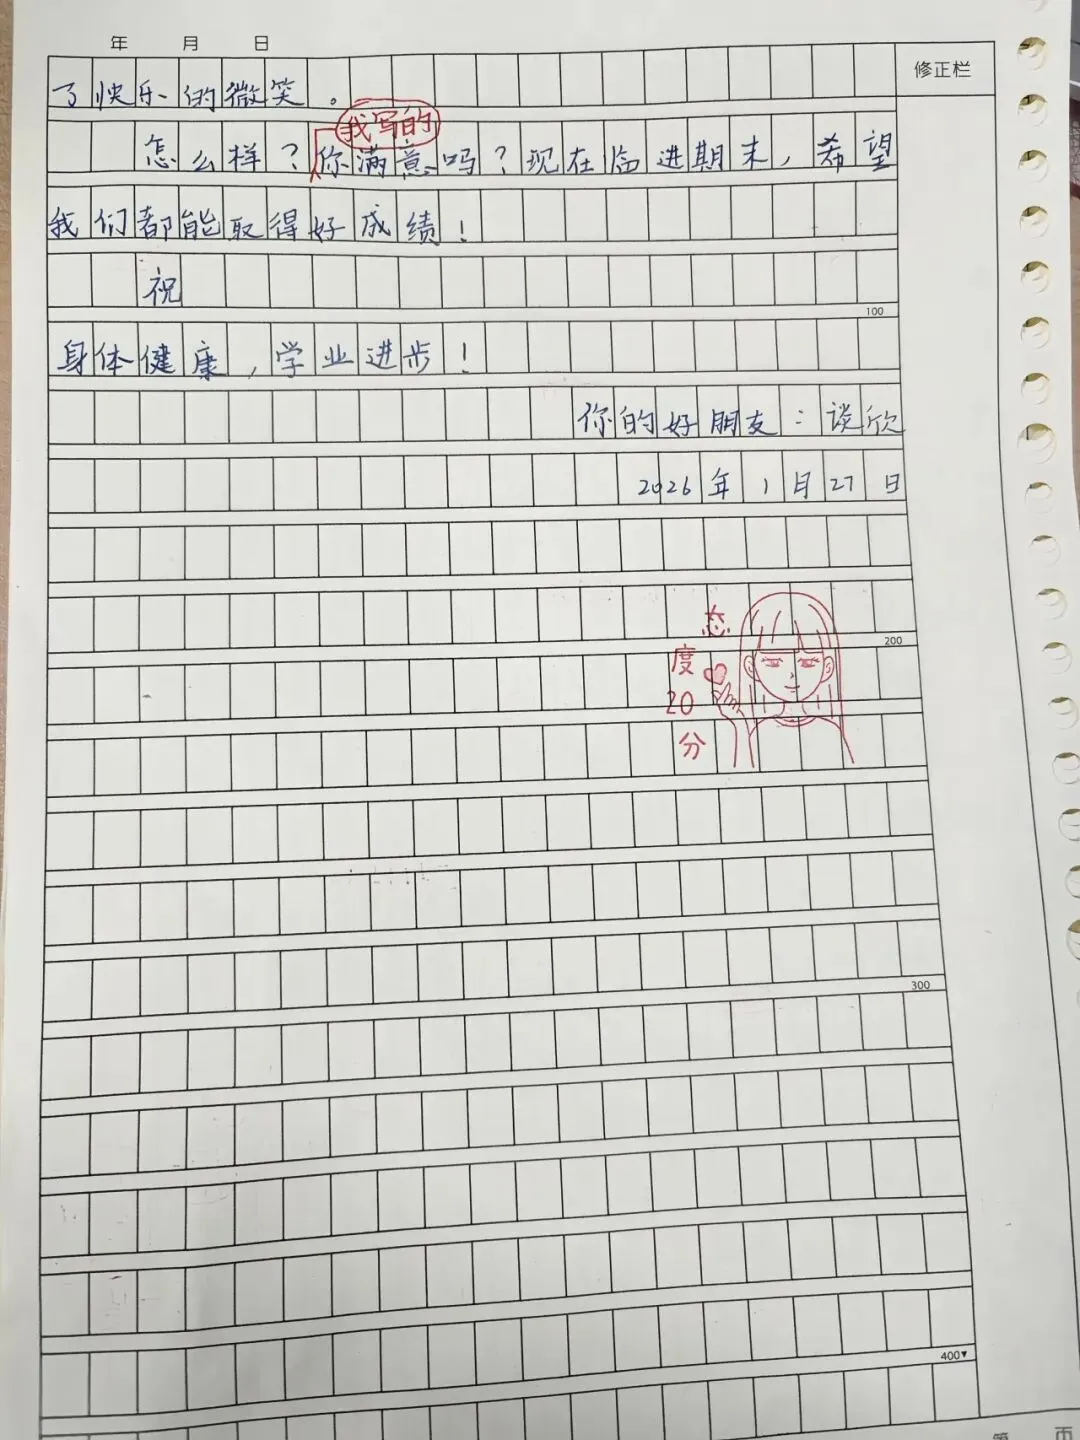 年 月 日
修正栏
了快乐的微笑。
我写的
怎么样？你满意吗？现在临进期末，希望
我们都能取得好成绩！
祝
100
身体健康，学业进步！
你的好朋友：谈欣
2026年1月27日
态
200
度
20
分
300
400▼
第 页